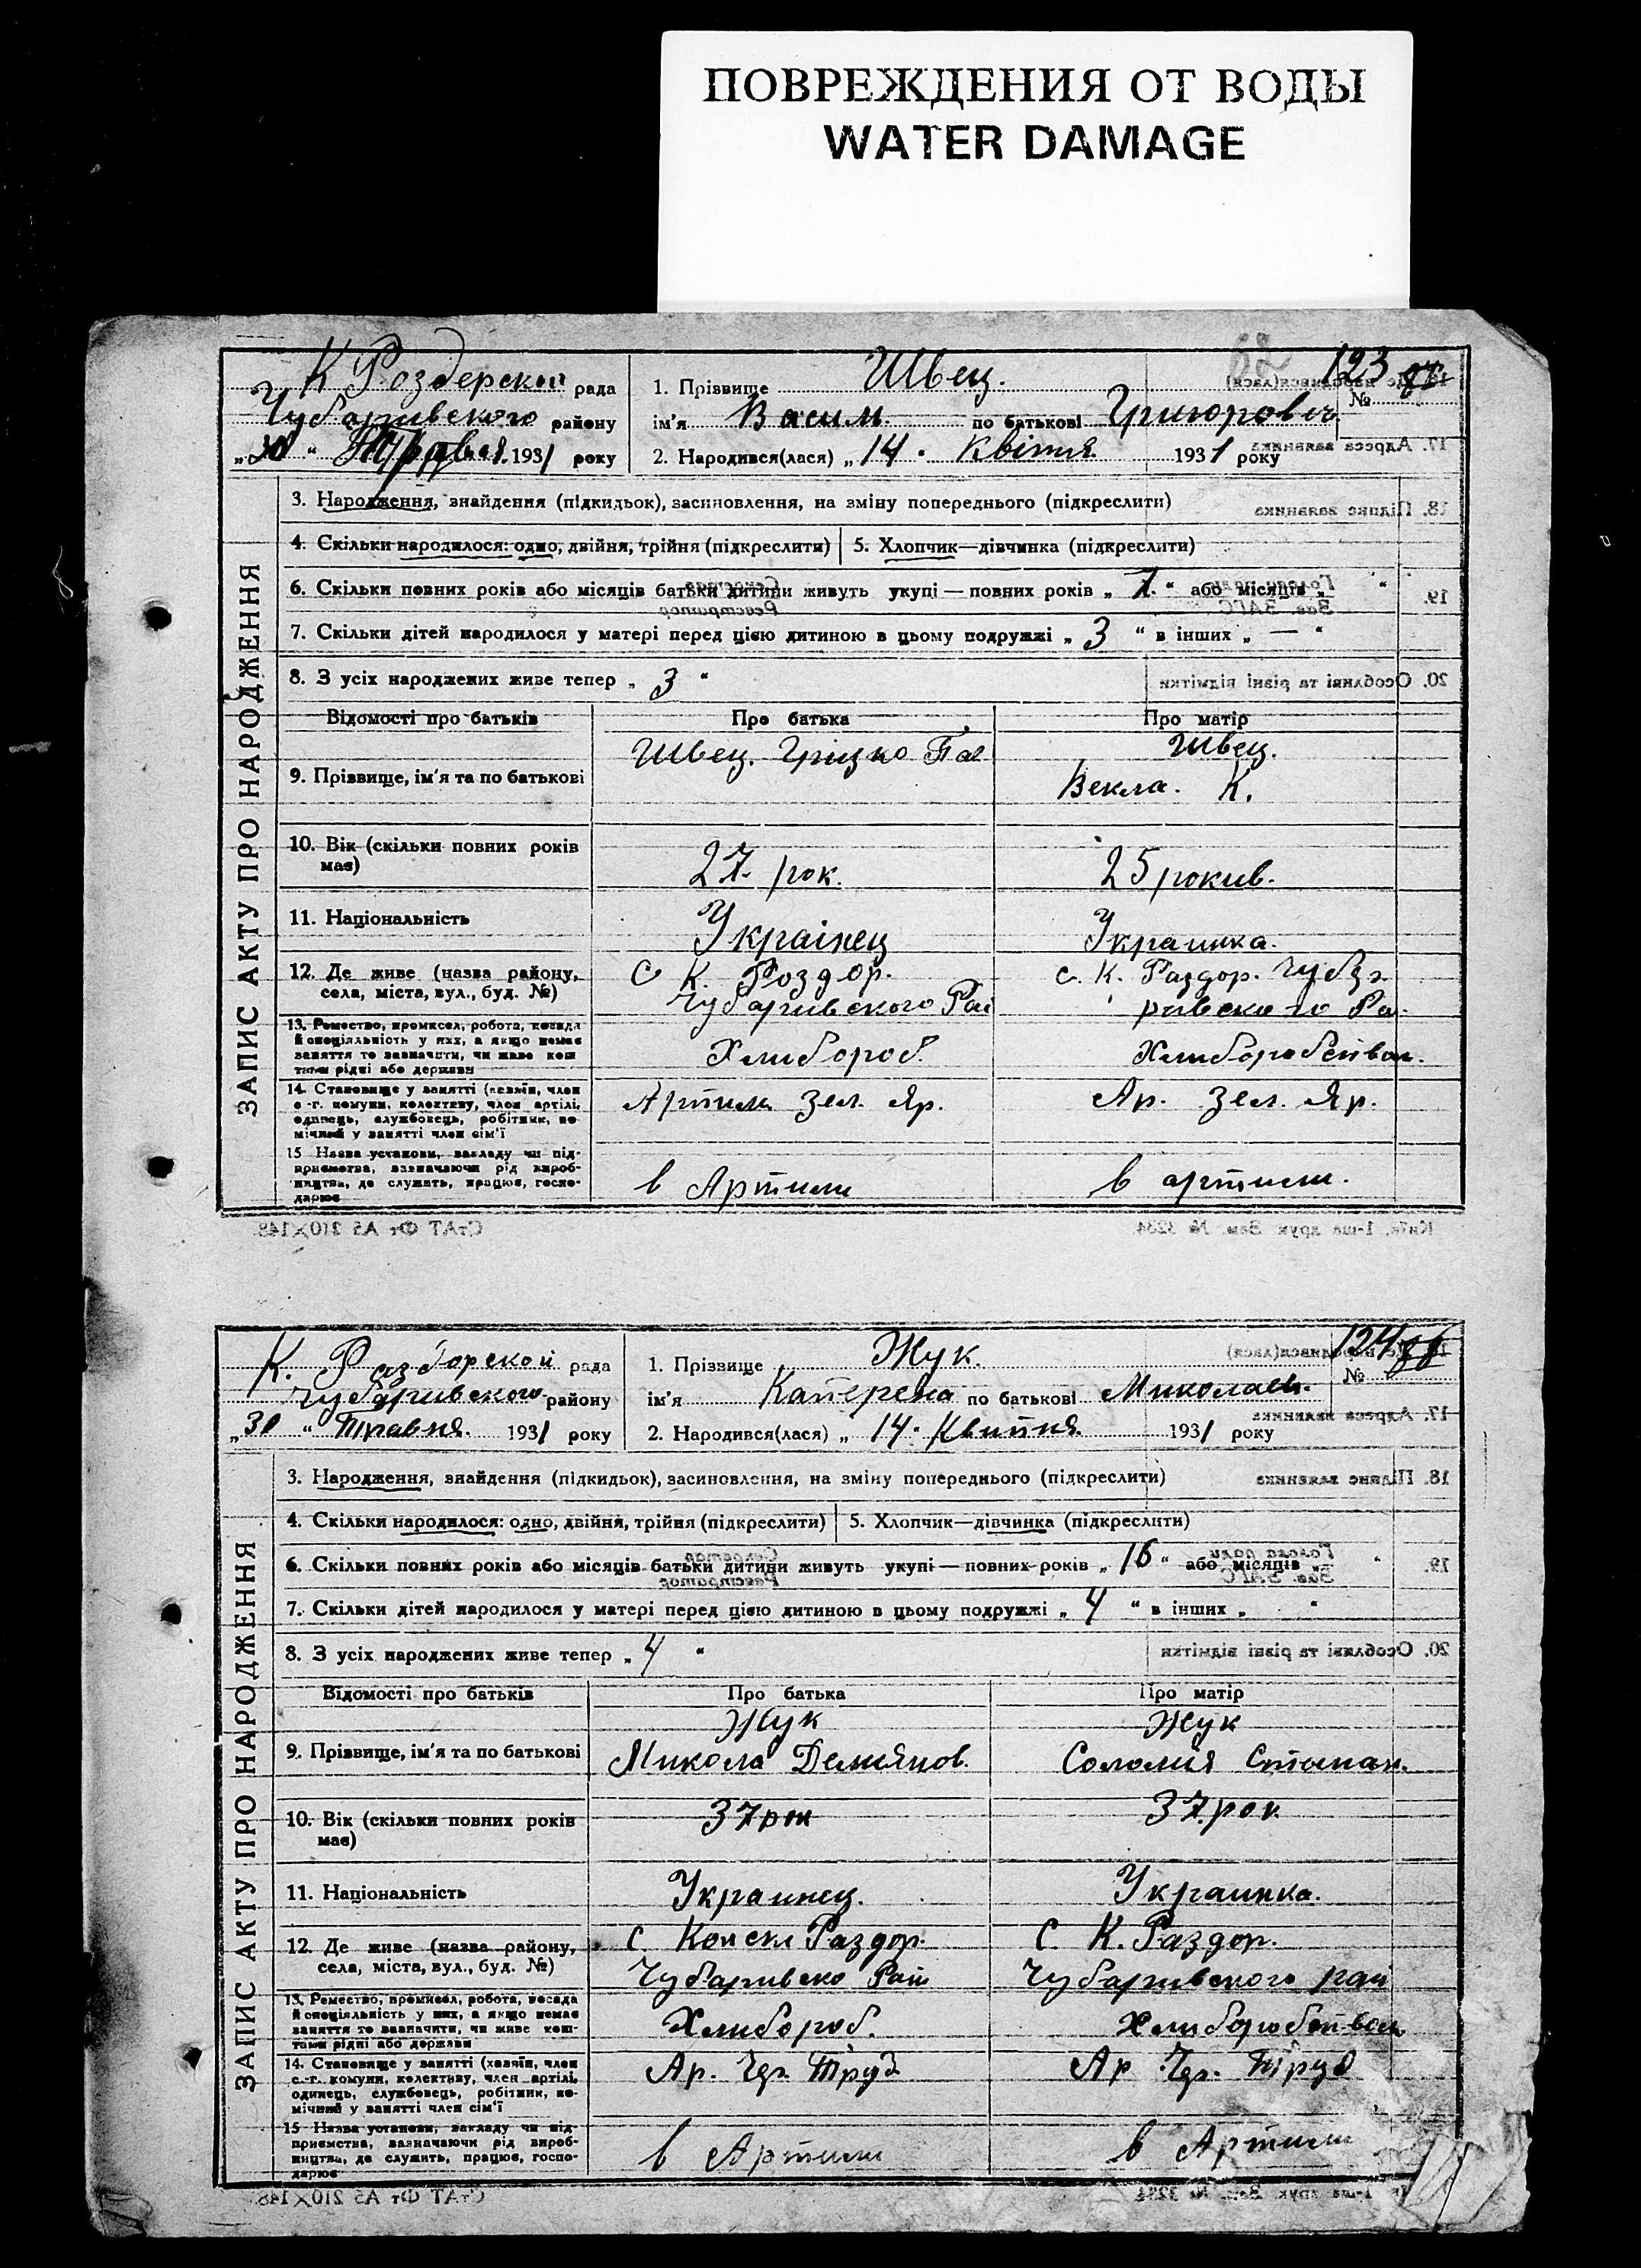 ПОВРЕЖДЕНИЯ ОТ ВОДЫ
WATER DAMAGE
К Роздерской рада
Чубаривского району
„30“ Травня 1931 року
1. Прізвище Швец.
ім'я Васим по батькові Григорович
2. Народився(лася) „14. Квітня 1931 року
№ 123
ЗАПИС АКТУ ПРО НАРОДЖЕННЯ
3. Народження, знайдення (підкидьок), засиновлення, на зміну попереднього (підкреслити)
4. Скільки народилося: одно, двійня, трійня (підкреслити) 5. Хлопчик—дівчинка (підкреслити)
6. Скільки повних років або місяців батьки дитини живуть укупі — повних років „7.“ або місяців „ “
7. Скільки дітей народилося у матері перед цією дитиною в цьому подружжі „3“ в інших „—“
8. З усіх народжених живе тепер „3“
Відомості про батьків Про батька Про матір
9. Прізвище, ім'я та по батькові Швец. Гріцко Пав Швец.
Векла. К.
10. Вік (скільки повних років має) 27 рок. 25 рокив.
11. Національність Украінец Украинка.
12. Де живе (назва району, села, міста, вул., буд. №) с К. Роздор. с. К. Раздор. Чуба
Чубаривского Рай ривского Ра.
13. Ремество, промисел, робота, посада
й спеціяльність у них, а якщо немає
заняття то зазначити, чи живе кош
тами рідні або держави
Хлибороб. Хлиборобство.
14. Становище у занятті (хазяїн, член
с.-г. комуни, колективу, член артілі,
одинець, службовець, робітник, по-
мічний у занятті член сім'ї
Артиль Зел. Яр. Ар. Зел. Яр.
15 Назва установи, закладу чи під-
приємства, зазначаючи рід вироб-
ництва, де служить, працює, госпо-
дарює
в Артили в артили.
СтАТ Фт А5 210×148. Київ, 1-ша друк Зам. № 3234
К. Раздорской рада
Чубаривского району
„30“ Травня. 1931 року
1. Прізвище Жук.
ім'я Катерена по батькові Миколаев.
2. Народився(лася) „14. Квитня 1931 року
№ 124
ЗАПИС АКТУ ПРО НАРОДЖЕННЯ
3. Народження, знайдення (підкидьок), засиновлення, на зміну попереднього (підкреслити)
4. Скільки народилося: одно, двійня, трійня (підкреслити) 5. Хлопчик—дівчинка (підкреслити)
6. Скільки повних років або місяців батьки дитини живуть укупі — повних років „16“ або місяців „ “
7. Скільки дітей народилося у матері перед цією дитиною в цьому подружжі „4“ в інших „ “
8. З усіх народжених живе тепер „4“
Відомості про батьків Про батька Про матір
Жук Жук
9. Прізвище, ім'я та по батькові Микола Демянов. Соломія Степан.
10. Вік (скільки повних років має) 37 рок 37 рок
11. Національність Украинец. Украинка.
12. Де живе (назва району, села, міста, вул., буд. №) с. Конски Раздор. С. К. Раздор.
Чубаривско Рай Чубаривского рай
13. Ремество, промисел, робота, посада
й спеціяльність у них, а якщо немає
заняття то зазначити, чи живе кош-
тами рідні або держави
Хлибороб. Хлиборобство
14. Становище у занятті (хазяїн, член
с.-г. комуни, колективу, член артілі,
одинець, службовець, робітник, по-
мічний у занятті член сім'ї
Ар. Чер. Труд Ар Чер. Труд
15 Назва установи, закладу чи під-
приємства, зазначаючи рід вироб-
ництва, де служить, працює, госпо-
дарює
в Артили в Артили
СтАТ Фт А5 210×148.